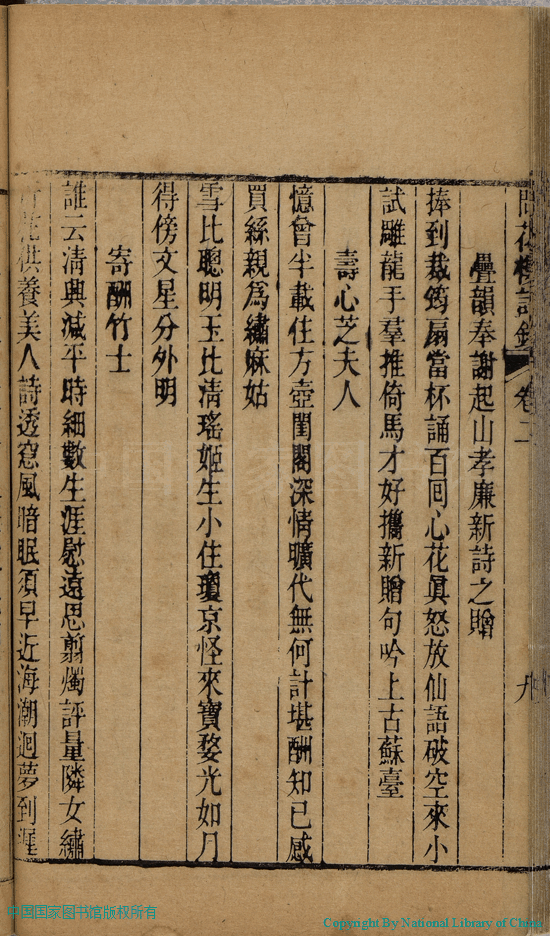 問花樓詩鈔 卷二 九
疊韻奉謝起山孝廉新詩之贈
捧到裁筠扇當杯誦百回心花眞怒放仙語破空來小
試雕龍手羣推倚馬才好攜新贈句吟上古蘇臺
壽心芝夫人
憶曾半載住方壺閨閣深情曠代無何計堪酬知己感
買絲親爲繡麻姑
雪比聰明玉比清瑤姬生小住瓊京怪來寶婺光如月
得傍文星分外明
寄酬竹士
誰云清興減平時細數生涯慰遠思翦燭評量隣女繡
花供養美人詩透窓風暗眠須早近海潮迴夢到遲
中国国家图书馆版权所有
Copyright By National Library of China